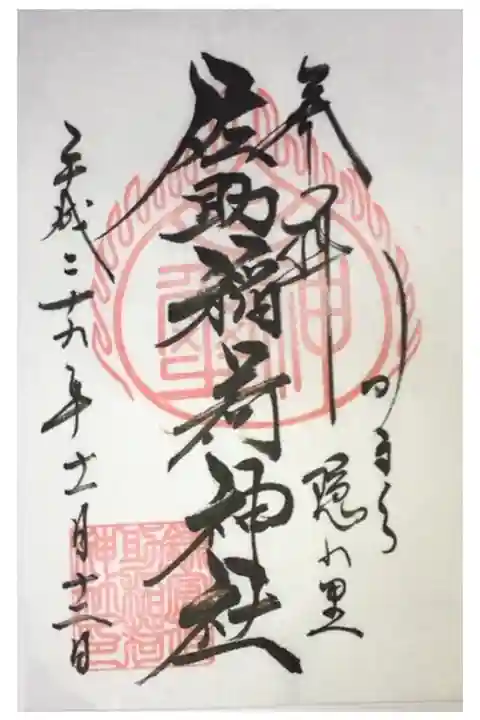 奉拝
隠れ里
佐助稲荷神社
平成二十九年十一月十三日